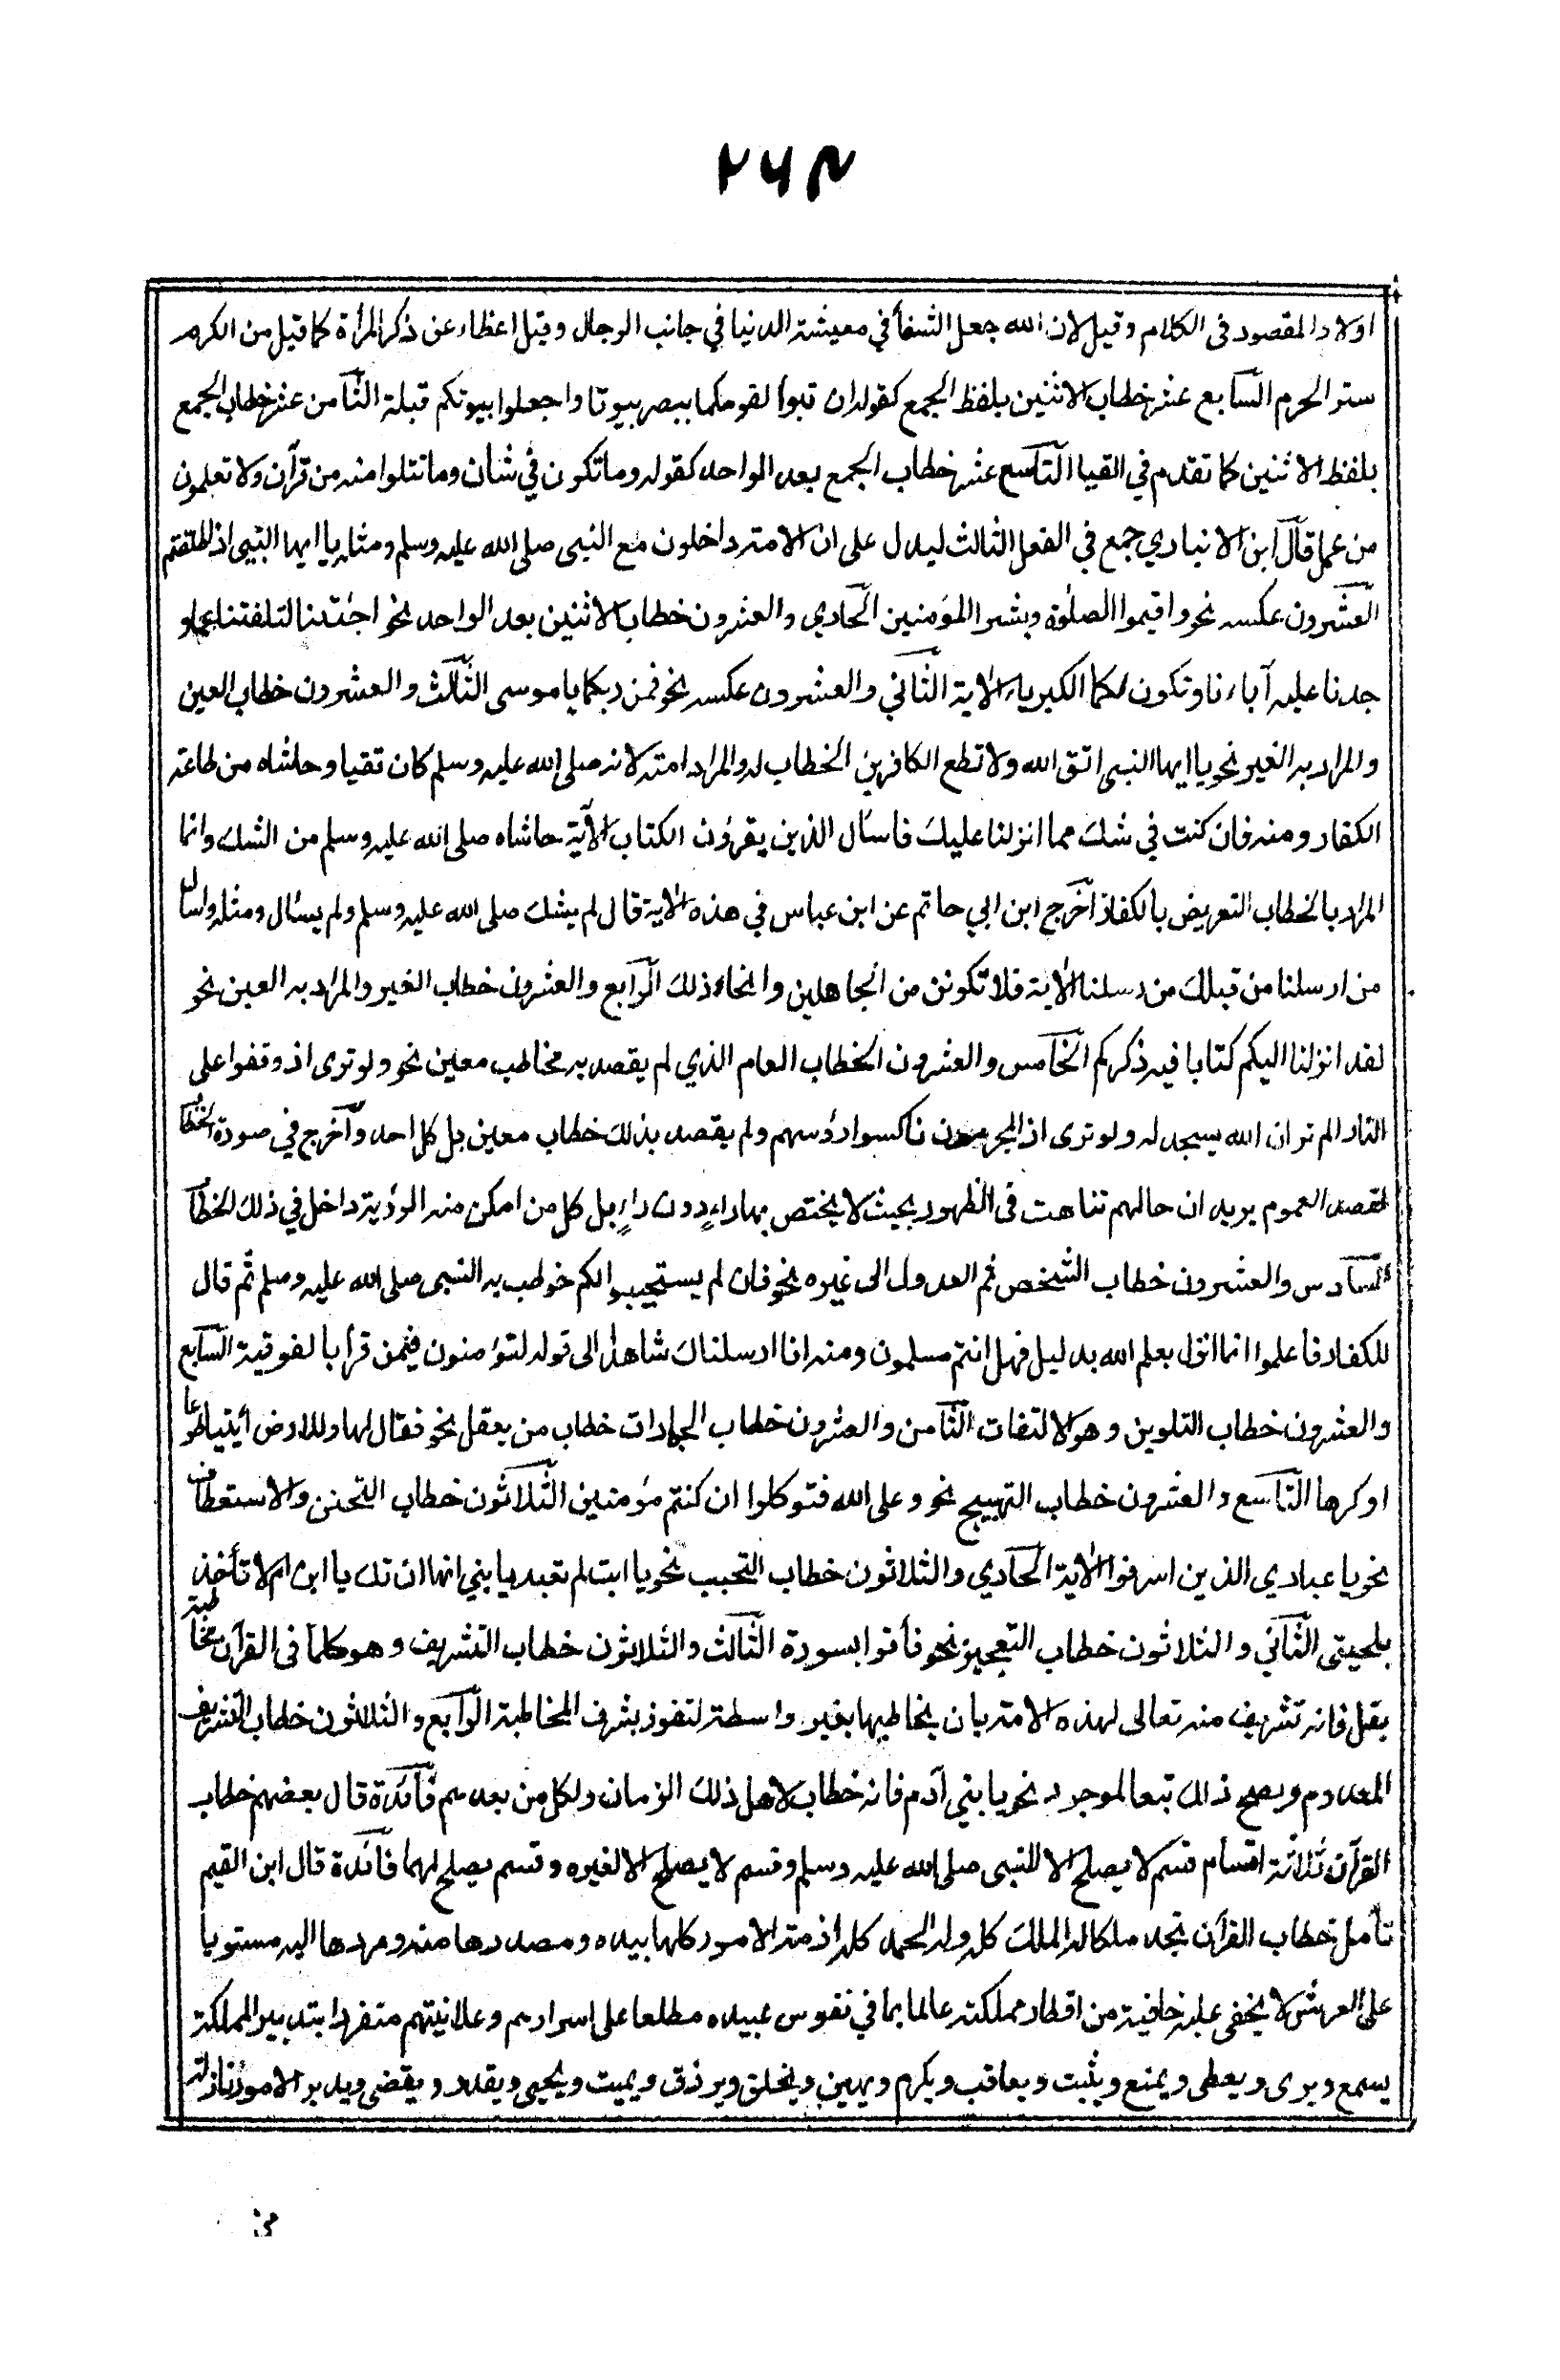 ٢٦٣
اولاد المقصود فى الكلام وقيل لان الله جعل الشفأ في معيشة الدنيا في جانب الرجال وقيل اغظاء عن ذكر المرأة كما قيل من الكرم
ستر الحرم السابع عشر خطاب الاثنين بلفظ الجمع كقوله ان تبوأ لقومكما بمصر بيوتا واجعلوا بيوتكم قبلة الثامن عشر خطاب الجمع
بلفظ الاثنين كما تقدم في القيا التاسع عشر خطاب الجمع بعد الواحد كقوله وما تكون في شان وما تتلوا منه من قرآن ولا تعلمون
من عمل قال ابن الانباري جمع في الفعل الثالث ليدل على ان الامة داخلون مع النبى صلى الله عليه وسلم ومثله يا ايها النبى اذا طلقتم
العشرون عكسه نحو واقيموا الصلوة وبشر المؤمنين الحادي والعشرون خطاب الاثنين بعد الواحد نحو اجئتنا لتلفتنا عما و
جدنا عليه آباءنا وتكون لكما الكبرياء الاية الثاني والعشرون عكسه نحو فمن ربكما يا موسى الثالث والعشرون خطاب العين
والمراد به الغير نحو يا ايها النبى اتق الله ولا تطع الكافرين الخطاب له والمراد امته لانه صلى الله عليه وسلم كان تقيا وحاشاه من طاعة
الكفار ومنه فان كنت في شك مما انزلنا عليك فاسأل الذين يقرؤن الكتاب الآية حاشاه صلى الله عليه وسلم من الشك وانما
المراد بالخطاب التعريض بالكفار اخرج ابن ابي حاتم عن ابن عباس في هذه الاية قال لم يشك صلى الله عليه وسلم ولم يسأل ومثله واسأل
من ارسلنا من قبلك من رسلنا الاية فلا تكونن من الجاهلين وانحاء ذلك الرابع والعشرون خطاب الغير والمراد به العين نحو
لقد انزلنا اليكم كتابا فيه ذكركم الخامس والعشرون الخطاب العام الذي لم يقصد به مخاطب معين نحو ولو ترى اذ وقفوا على
النار الم تر ان الله يسجد له ولو ترى اذ المجرمون ناكسوا رؤسهم ولم يقصد بذلك خطاب معين بل كل احد وآخرج في صورة الخطاب
لقصد العموم يريد ان حالهم تناهت فى الظهور بحيث لا يختص بها راءٍ دون راءٍ بل كل من امكن منه الرؤية داخل في ذلك الخطاب
السادس والعشرون خطاب الشخص ثم العدول الى غيره نحو فان لم يستجيبوا لكم خوطب به النبى صلى الله عليه وسلم ثم قال
للكفار فاعلموا انما انزل بعلم الله بدليل فهل انتم مسلمون ومنه انا ارسلناك شاهدا الى قوله لتؤمنون فيمن قرأ بالفوقية السابع
والعشرون خطاب التلوين وهو الالتفات الثامن والعشرون خطاب الجمادات خطاب من يعقل نحو فقال لها وللارض أيتيا طوعا
او كرها التاسع والعشرون خطاب التهييج نحو وعلى الله فتوكلوا ان كنتم مؤمنين الثلاثون خطاب التحنن والاستعطاف
نحو يا عبادي الذين اسرفوا الاية الحادي والثلاثون خطاب التحبب نحو يا ابت لم تعبد يا بني انها ان تك يا ابن ام لا تأخذ
بلحيتى الثاني والثلاثون خطاب التعجيز نحو فأتوا بسورة الثالث والثلاثون خطاب التشريف وهو كلما فى القرآن مخاطبة
بقل فانه تشريف منه تعالى لهذه الامة بان يخاطبها بغير واسطة لتفوز بشرف المخاطبة الرابع والثلاثون خطاب التشريف
المعدوم ويصح ذلك تبعا لموجود نحو يا بني آدم فانه خطاب لاهل ذلك الزمان ولكل من بعدهم فائدة قال بعضهم خطاب
القرآن ثلاثة اقسام قسم لا يصلح الا للنبى صلى الله عليه وسلم وقسم لا يصلح الا لغيره وقسم يصلح لهما فائدة قال ابن القيم
تأمل خطاب القرآن تجد ملكا له الملك كله وله الحمد كله ازمة الامور كلها بيده ومصدرها منه ومردها اليه مستويا
على العرش لا يخفى عليه خافية من اقطار مملكته عالما بما في نفوس عبيده مطلعا على اسرارهم وعلانيتهم متفردا بتدبير المملكة
يسمع ويرى ويعطى ويمنع ويثبت ويعاقب ويكرم ويهين ويخلق ويرزق ويميت ويحيى ويقدر ويقضى ويدبر الامور نازلة
من